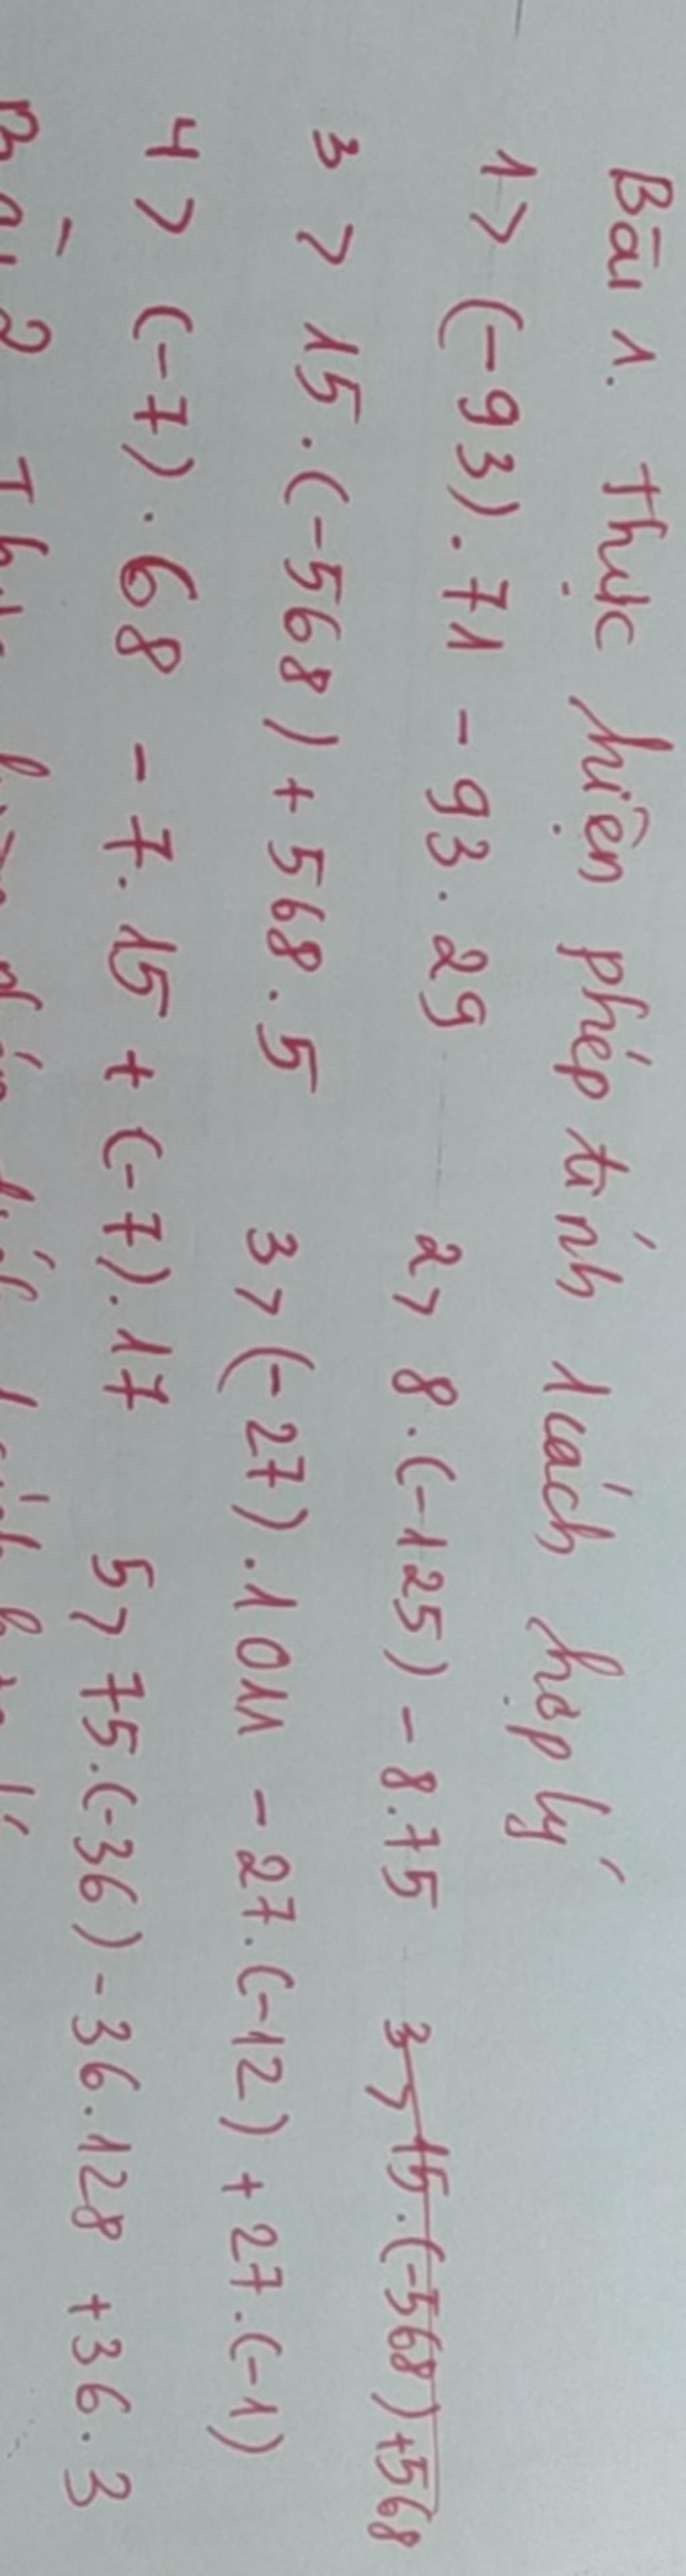 Bài 1. Thực hiện phép tính 1 cách hợp lý
1> (-93).71 - 93.29 2> 8.(-125) - 8.75 3> 15.(-568)+568
3> 15.(-568)+568.5 3>(-27).1011 - 27.(-12) + 27.(-1)
4> (-7).68 - 7.15 + (-7).17 5> 75.(-36) - 36.128 + 36.3
Bài 2